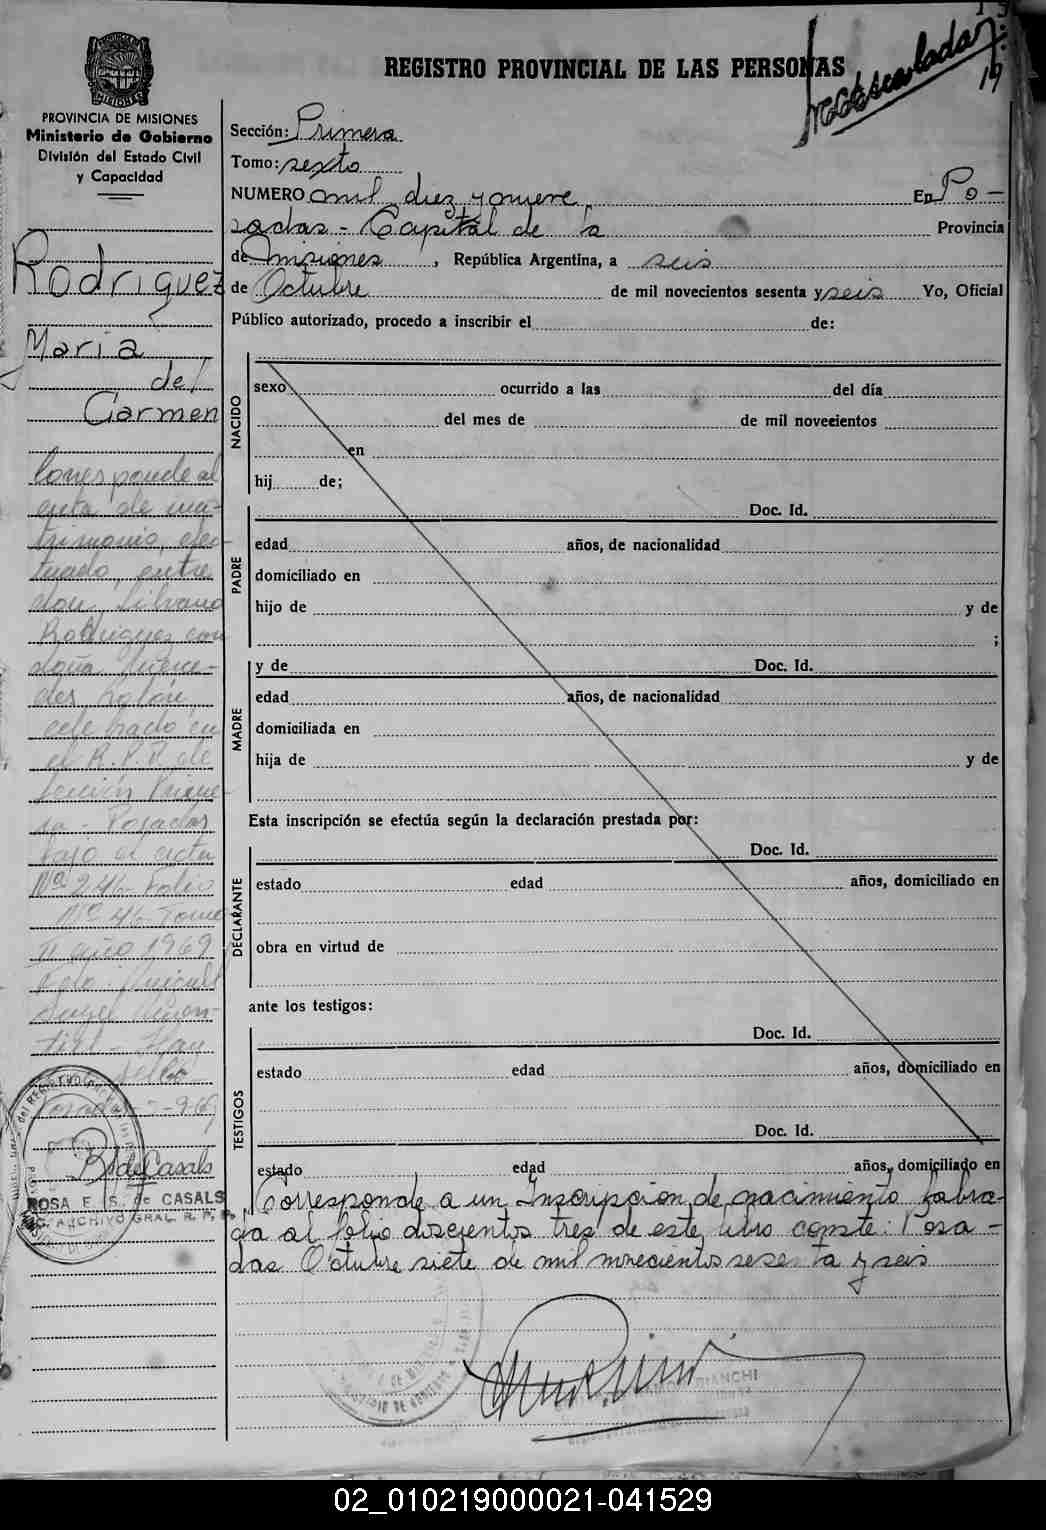 REGISTRO PROVINCIAL DE LAS PERSONAS
PROVINCIA DE MISIONES
Ministerio de Gobierno
División del Estado Civil
y Capacidad
Rodriguez
Maria
del
Carmen
Corresponde al
acta de ma-
trimonio, efec-
tuado, entre
don Silvano
Rodriguez con
doña Merce-
des
celebrado en
el R.P.P. de
Sección Prime-
ra - Posadas
bajo el acta
Nº 246 - Folio
Nº 46 - Tomo
II año 1969
ROSA E. S. de CASALS
ARCHIVO GRAL. R. P. P.
Sección: Primera
Tomo: sexto
NUMERO mil diez y nueve. En Po-
sadas - Capital de la Provincia
de Misiones, República Argentina, a seis
de Octubre de mil novecientos sesenta y seis Yo, Oficial
Público autorizado, procedo a inscribir el de:
NACIDO
sexo ocurrido a las del día
del mes de de mil novecientos
en
hij de;
PADRE
Doc. Id.
edad años, de nacionalidad
domiciliado en
hijo de y de
;
MADRE
y de Doc. Id.
edad años, de nacionalidad
domiciliada en
hija de y de
Esta inscripción se efectúa según la declaración prestada por:
DECLARANTE
Doc. Id.
estado edad años, domiciliado en
obra en virtud de
ante los testigos:
TESTIGOS
Doc. Id.
estado edad años, domiciliado en
Doc. Id.
estado edad años, domiciliado en
Corresponde a un Inscripcion de nacimiento labra-
da al folio doscientos tres de este libro conste: Posa-
das Octubre siete de mil novecientos sesenta y seis
02_010219000021-041529